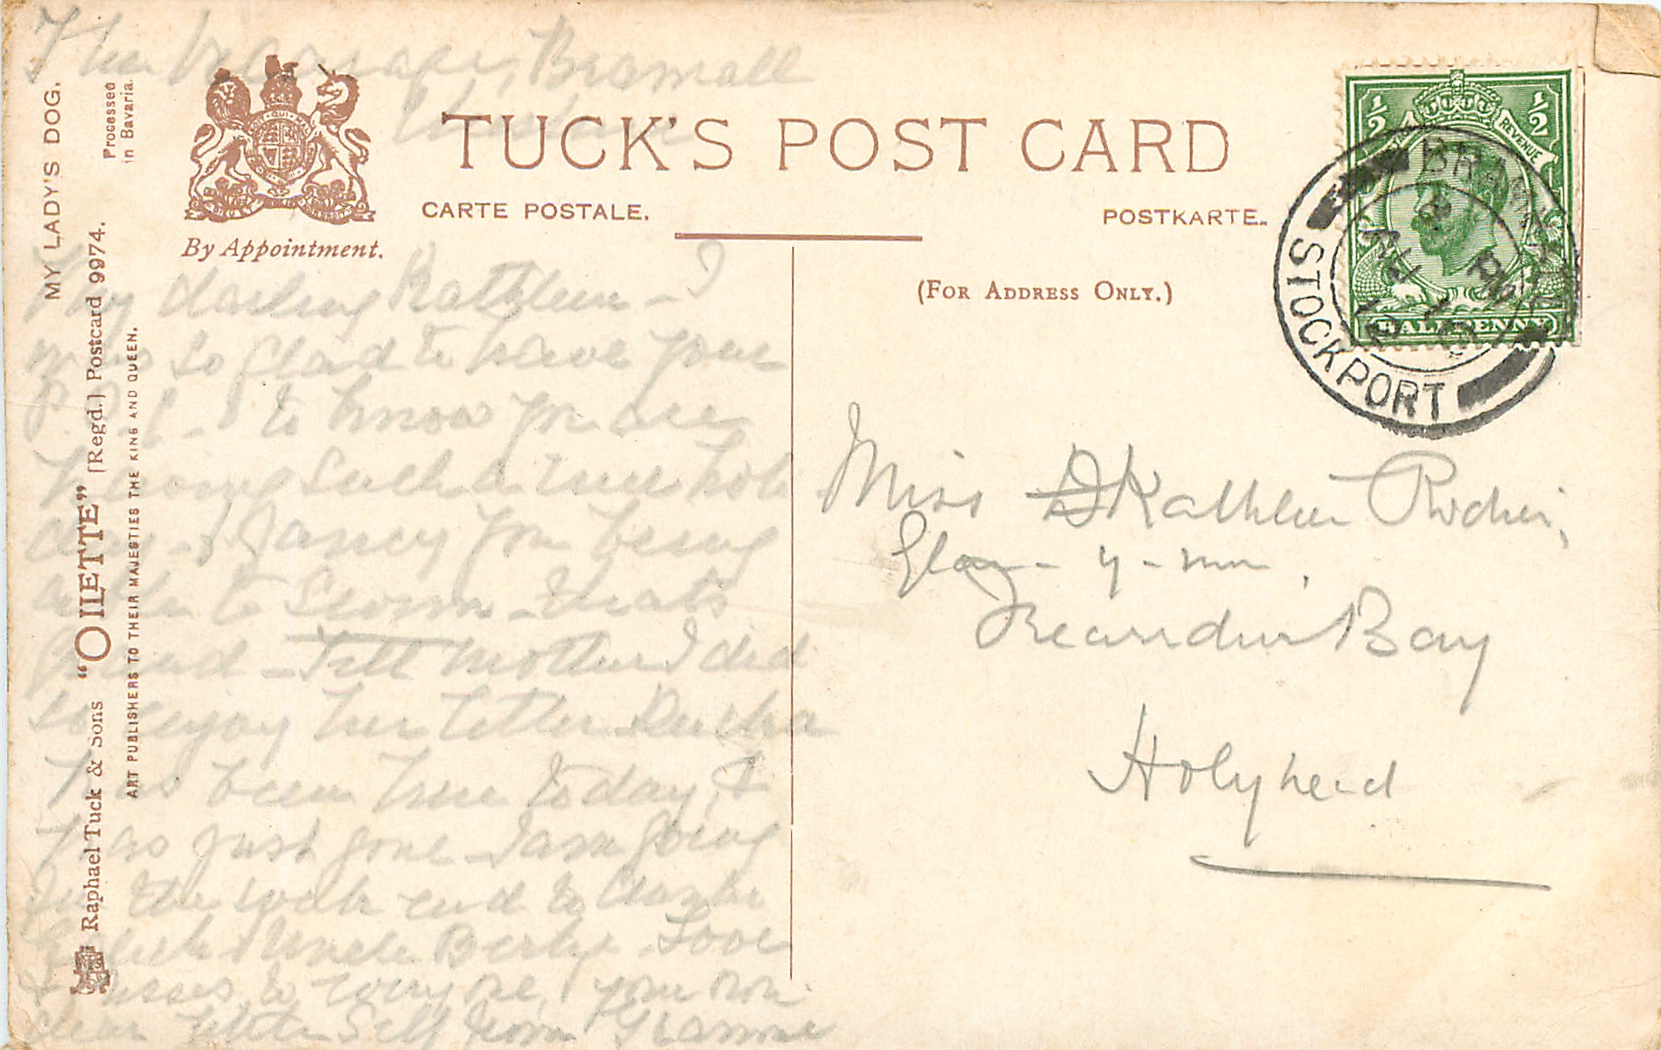 The Vicarage, Bramall
TUCK'S POST CARD
CARTE POSTALE.
POSTKARTE.
By Appointment.
(FOR ADDRESS ONLY.)
MY LADY'S DOG.
Processed
in Bavaria.
Raphael Tuck & Sons "OILETTE" [Regd.] Postcard 9974.
ART PUBLISHERS TO THEIR MAJESTIES THE KING AND QUEEN.
½ ½
REVENUE
HALFPENNY
BRAMHALL
STOCKPORT
8 PM
AU
12
My darling Kathleen - I
was so glad to have your
P.P.C. & to know you are
having such a nice holi
day - & fancy you being
able to swim - that's
grand - Tell Mother I did
so enjoy her letter
has been here today, &
has just gone - I am going
for the week end to
& Uncle - Love
& kisses to everyone, & your own
dear little self from Grannie
Miss Kathleen
Glan-y-mor,
Trearddur Bay
Holyhead